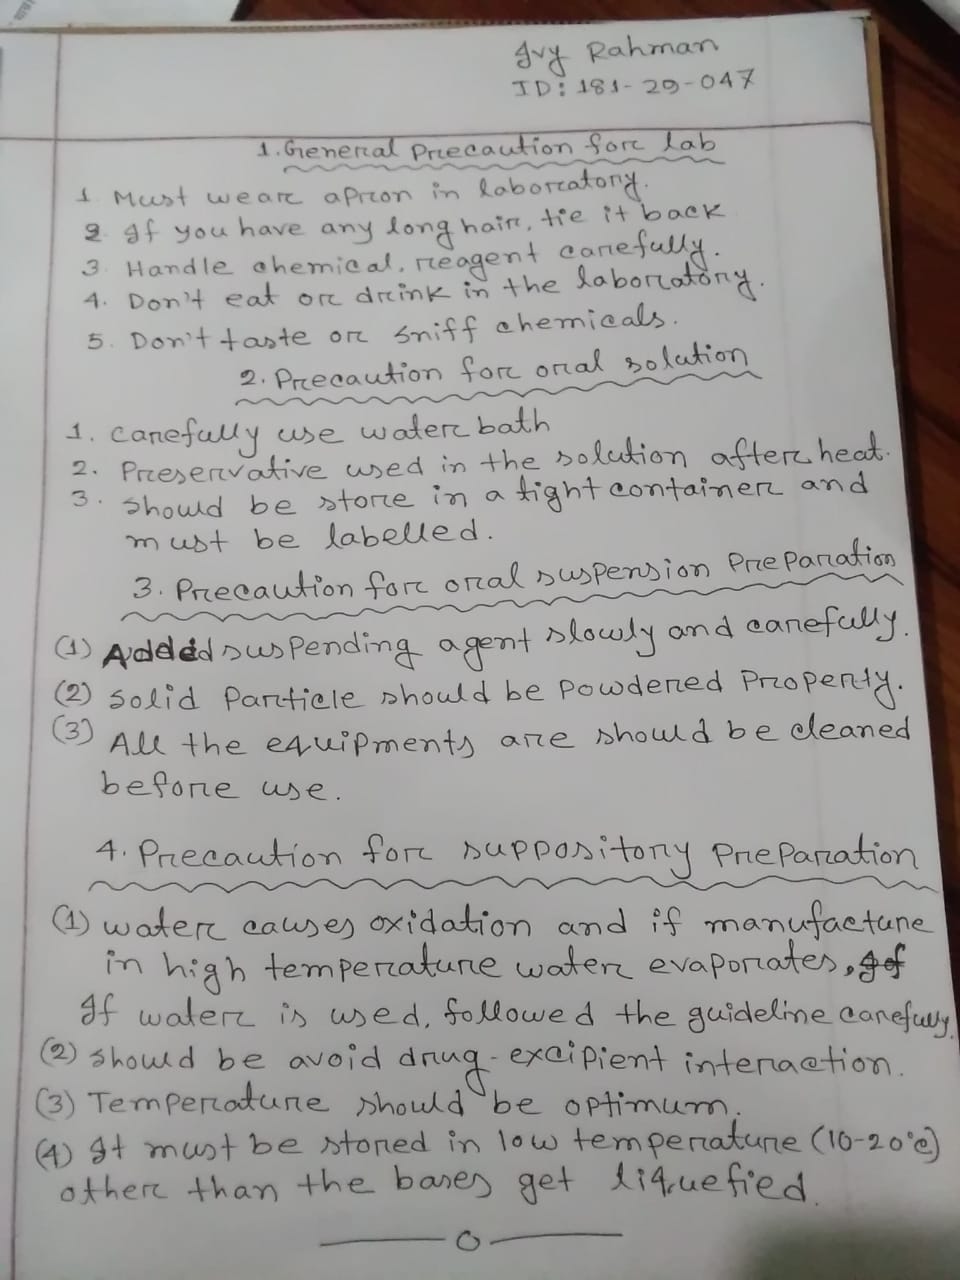 Ivy Rahman
ID: 181-29-047
1. General Precaution for lab
1. Must wear apron in laboratory.
2. If you have any long hair, tie it back
3. Handle chemical, reagent carefully.
4. Don't eat or drink in the laboratory.
5. Don't taste or sniff chemicals.
2. Precaution for oral solution
1. carefully use water bath
2. Preservative used in the solution after heat.
3. should be store in a tight container and
must be labelled.
3. Precaution for oral suspension Preparation
(1) Added suspending agent slowly and carefully.
(2) solid Particle should be Powdered Properly.
(3) All the equipments are should be cleaned
before use.
4. Precaution for suppository Preparation
(1) water causes oxidation and if manufacture
in high temperature water evaporates,
If water is used, followed the guideline carefully.
(2) should be avoid drug-excipient interaction.
(3) Temperature should be optimum.
(4) It must be stored in low temperature (10-20°c)
other than the bases get liquefied.